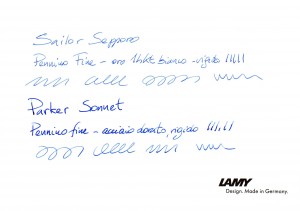 Sailor Sapporo
Pennino Fine - oro 14kt bianco - rigido
Parker Sonnet
Pennino fine - acciaio dorato, rigido
LAMY
Design. Made in Germany.